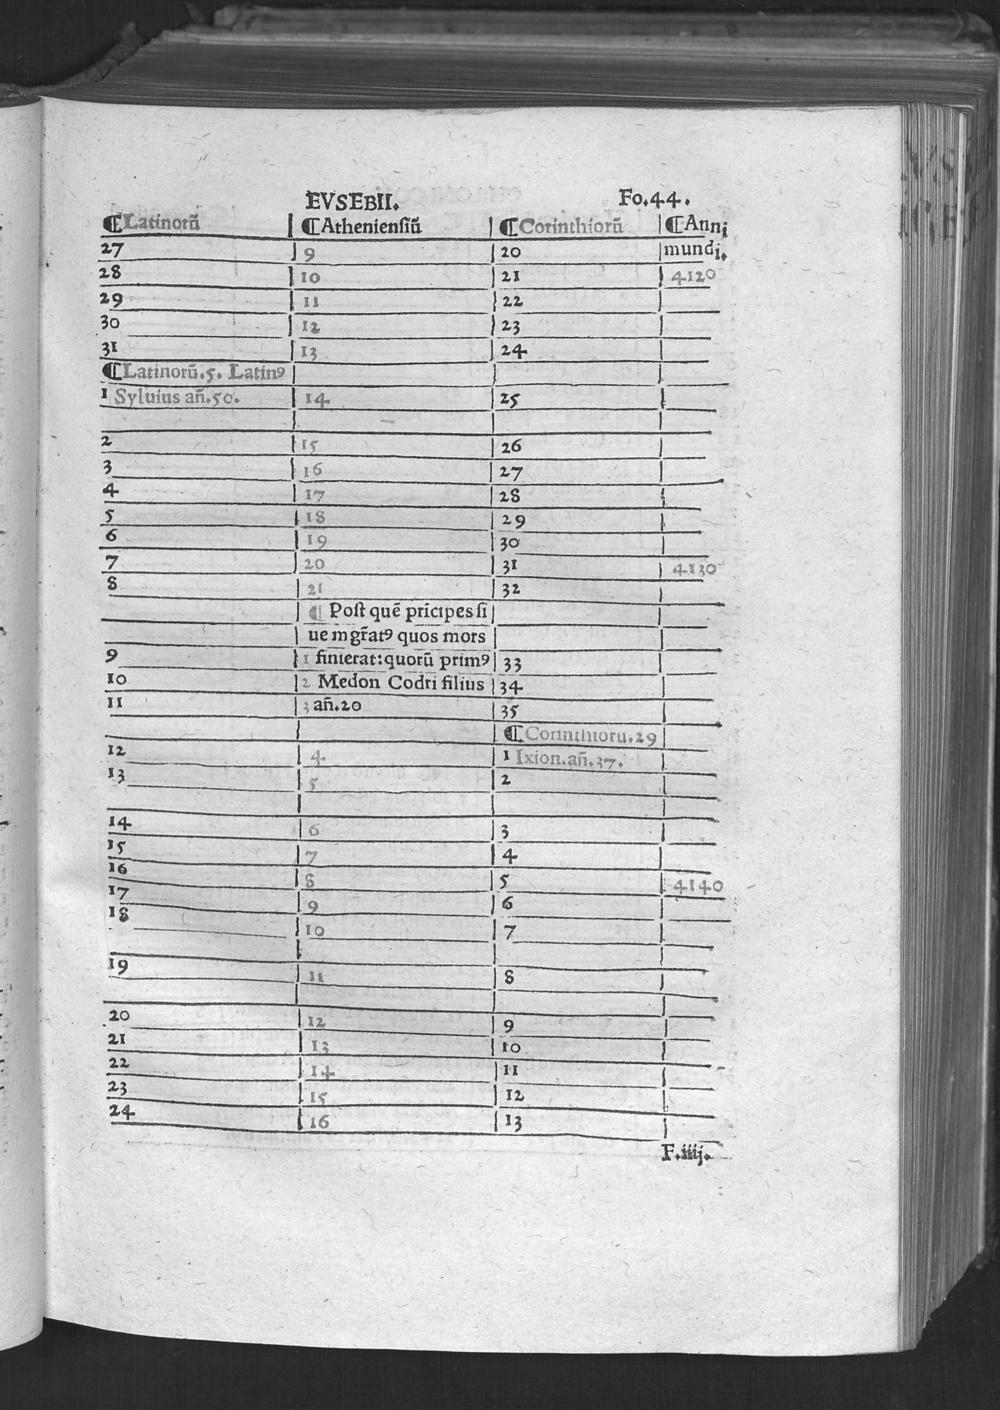 EVSEBII. Fo.44.
¶Latinorū ¶Atheniensiū ¶Corinthiorū ¶Anni
27 9 20 mundi.
28 10 21 4120
29 11 22
30 12 23
31 13 24
¶Latinorū.5. Latinꝰ
1 Syluius añ.50. 14 25
2 15 26
3 16 27
4 17 28
5 18 29
6 19 30
7 20 31 4130
8 21 32
¶ Post quē prīcipes si
ue mgr̄atꝰ quos mors
9 1 finierat:quorū primꝰ 33
10 2 Medon Codri filius 34
11 3 añ.20 35
¶Corinthioru.29
12 4 1 Ixion.añ.37.
13 5 2
14 6 3
15 7 4
16 8 5 4140
17 9 6
18 10 7
19 11 8
20 12 9
21 13 10
22 14 11
23 15 12
24 16 13
F.iiij.